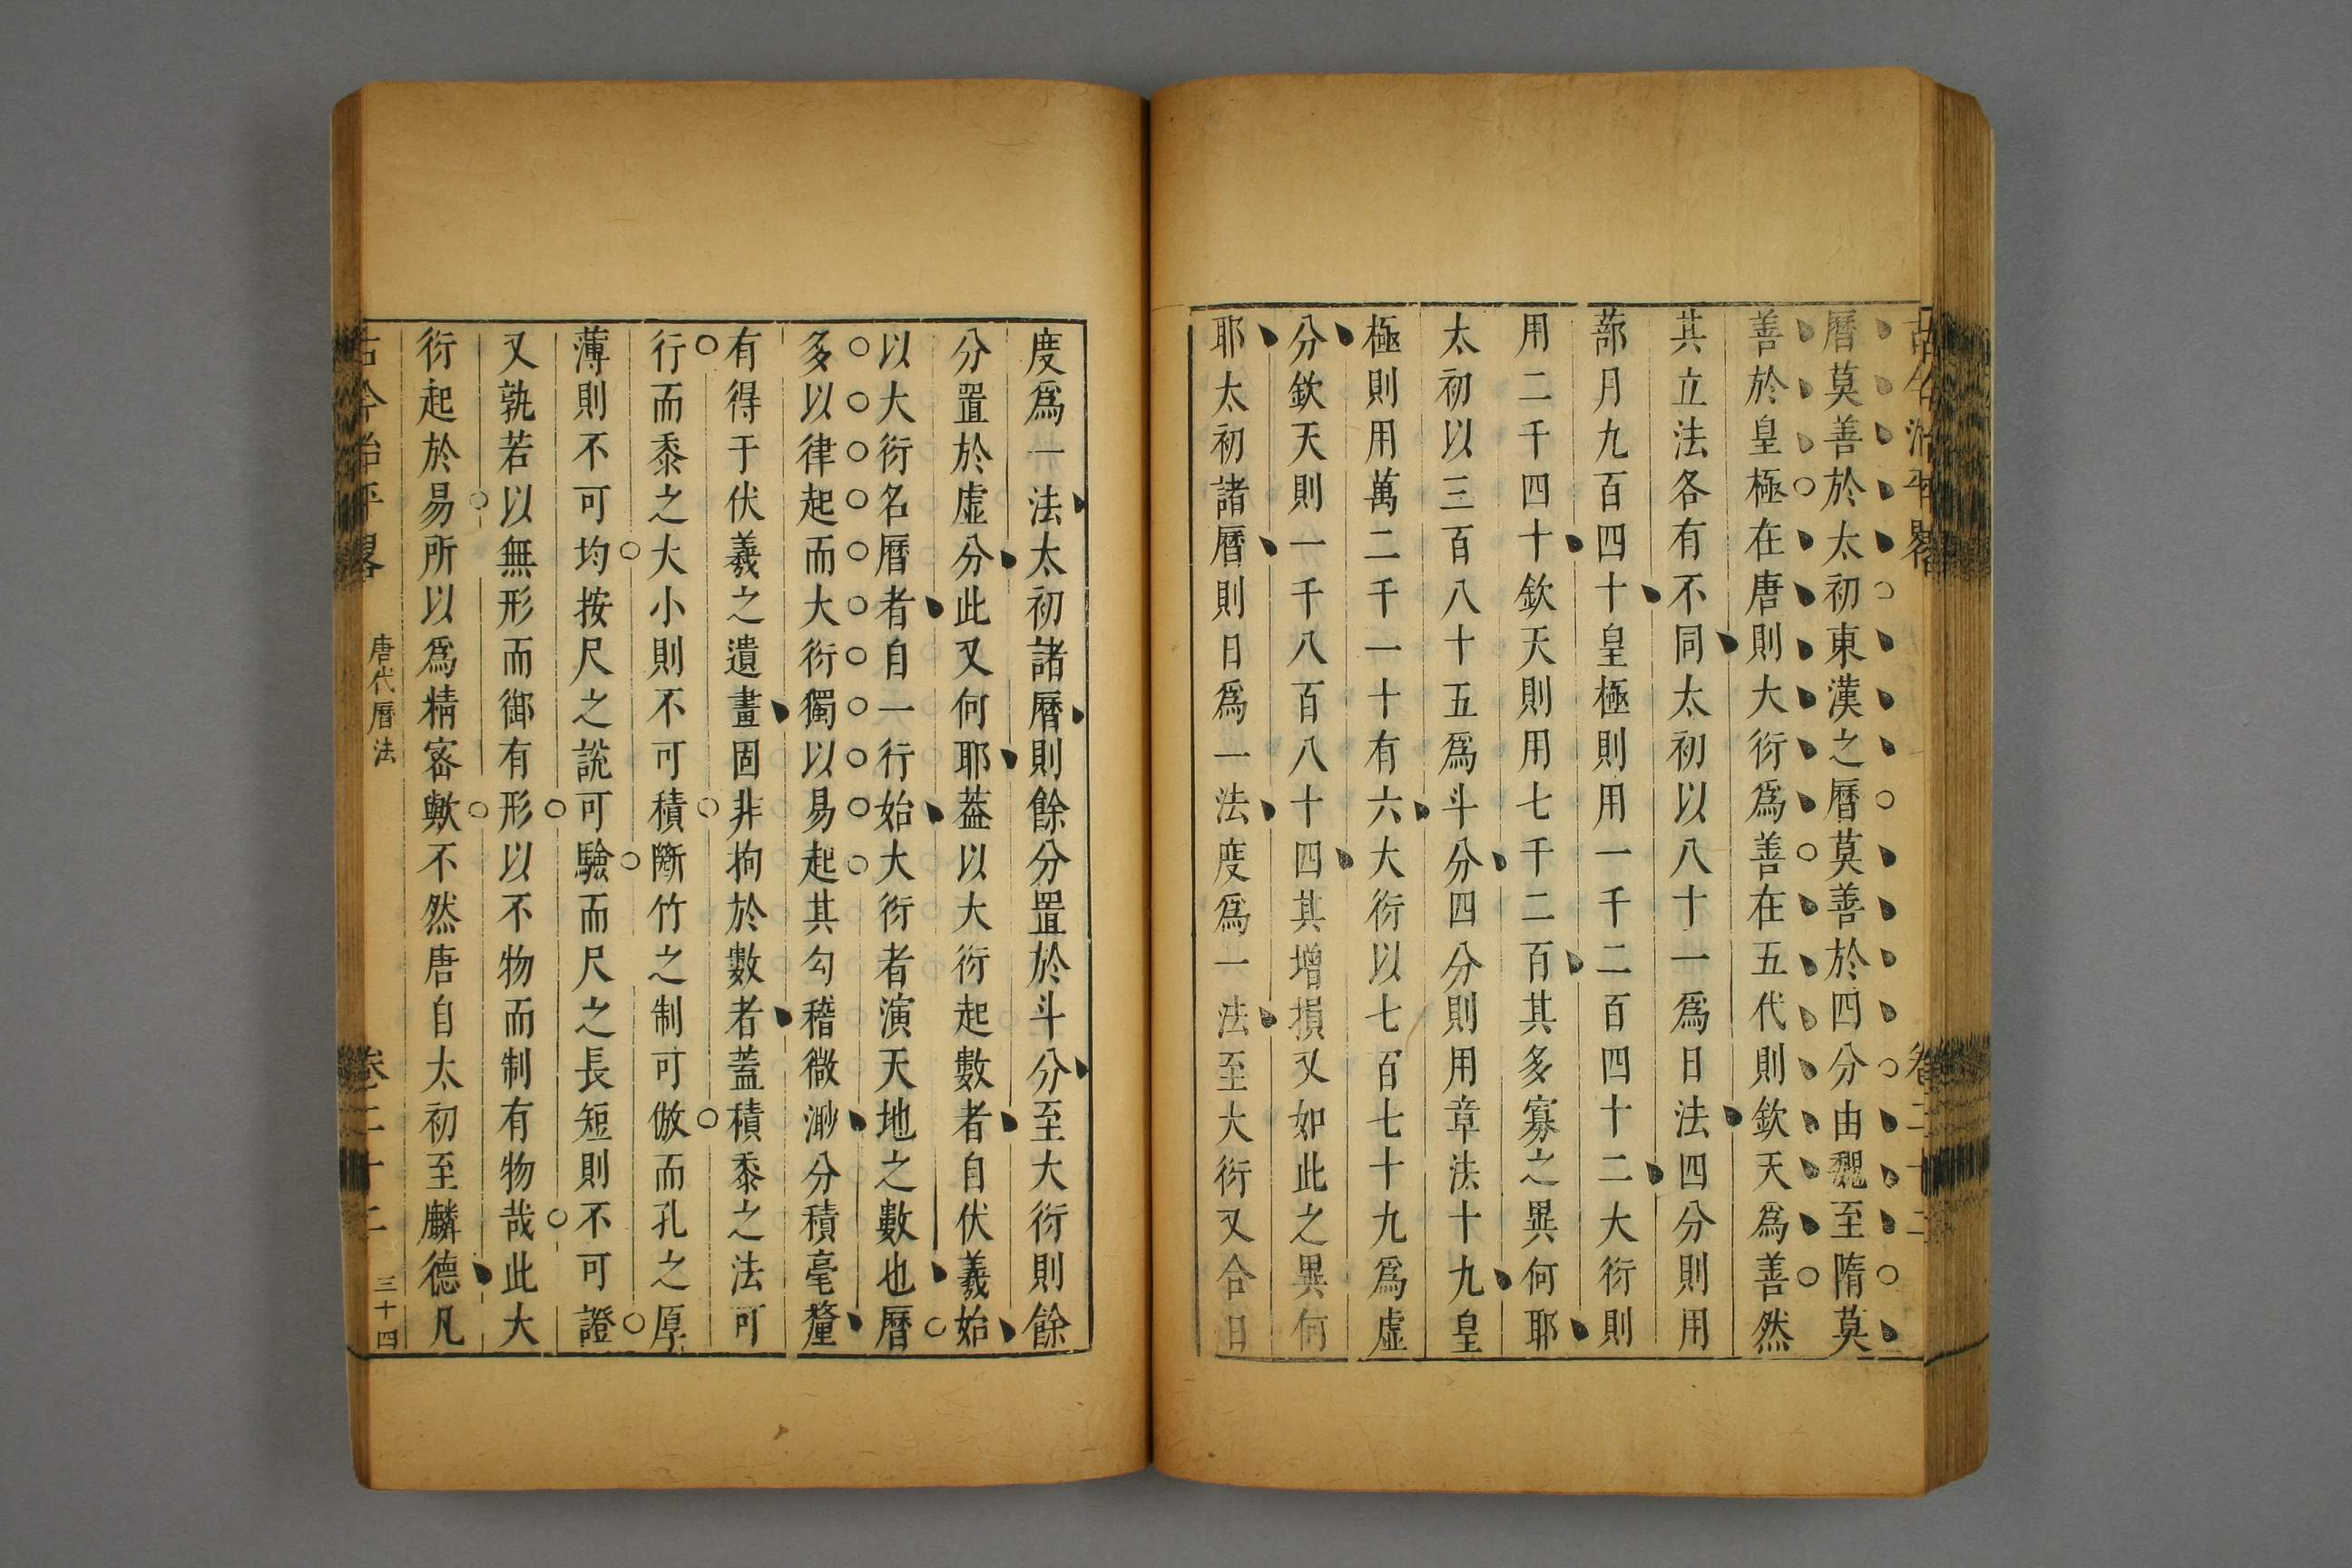 曆莫善於太初東漢之曆莫善於四分由魏至隋莫
善於皇極在唐則大衍爲善在五代則欽天爲善然
其立法各有不同太初以八十一爲日法四分則用
蔀月九百四十皇極則用一千二百四十二大衍則
用二千四十欽天則用七千二百其多寡之異何耶
太初以三百八十五爲斗分四分則用章法十九皇
極則用萬二千一十有六大衍以七百七十九爲虛
分欽天則一千八百八十四其增損又如此之異何
耶太初諸曆則日爲一法度爲一法至大衍又合日
度爲一法太初諸曆則餘分置於斗分至大衍則餘
分置於虛分此又何耶葢以大衍起數者自伏羲始
以大衍名曆者自一行始大衍者演天地之數也曆
多以律起而大衍獨以易起其勾稽微渺分積毫釐
有得于伏羲之遺畫固非拘於數者蓋積黍之法可
行而黍之大小則不可積斷竹之制可倣而孔之厚
薄則不可均按尺之說可驗而尺之長短則不可證
又孰若以無形而御有形以不物而制有物哉此大
衍起於易所以爲精密歟不然唐自太初至麟德凡
古今治平畧
唐代曆法
卷二十二
三十四